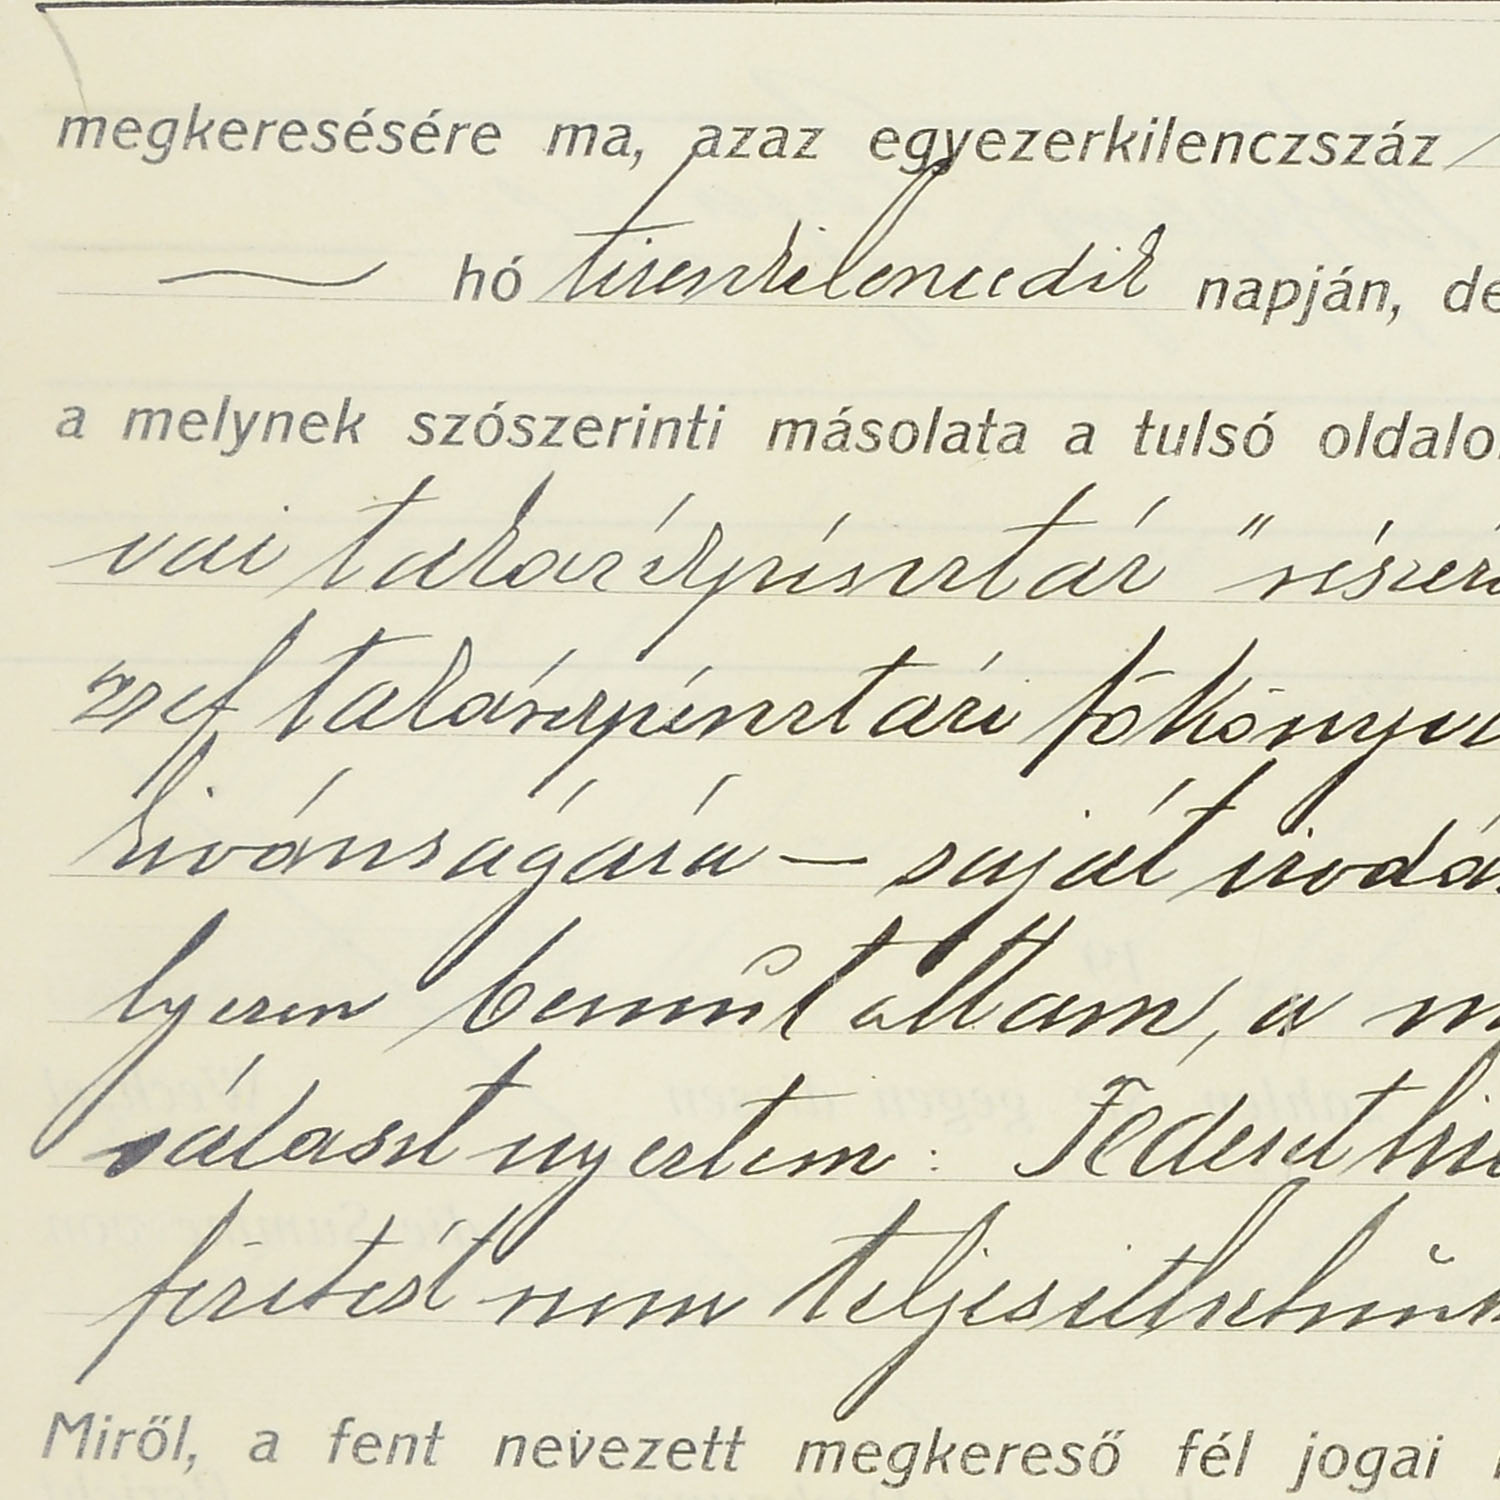 megkeresésére ma, azaz egyezerkilenczszáz
hó tizenkilenczedik napján, de
a melynek szószerinti másolata a tulsó oldalo
vai takarékpénztár" részére
zsef takarékpénztári főkönyv
kivánságára — saját irodá
lyesen bemútattam, a m
választ nyertem: Fedezet hi
fizetést nem teljesithetünk
Miről, a fent nevezett megkereső fél jogai